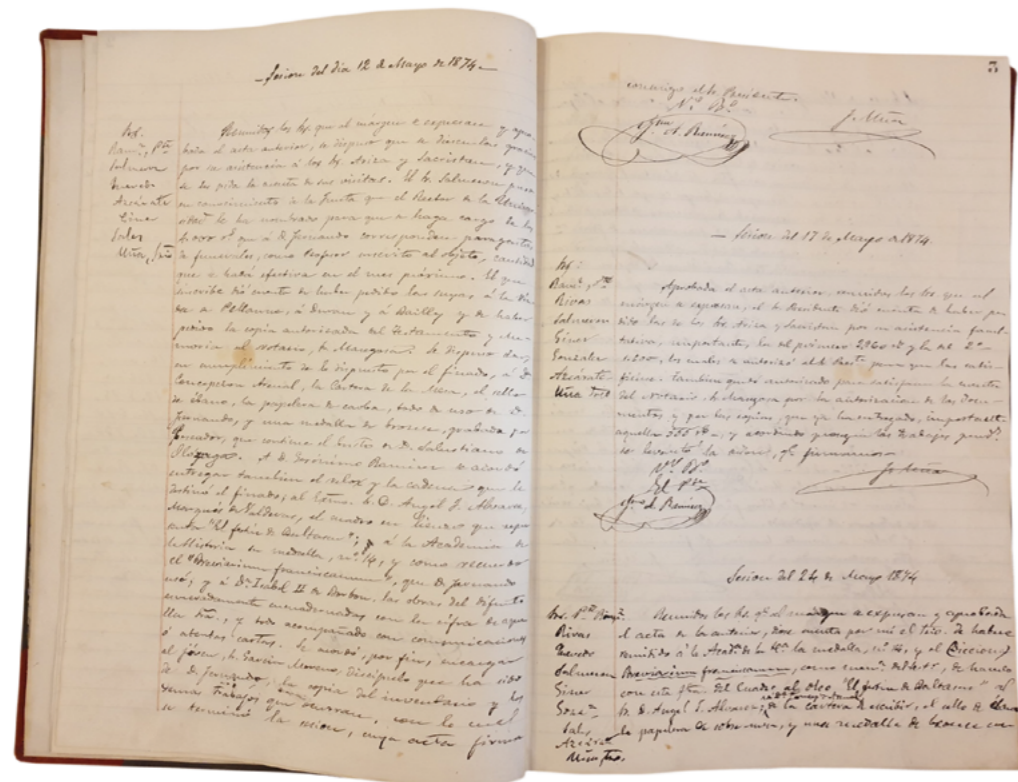 Sesion del dia 12 de Mayo de 1874
Sres.
Ram.z, Pte
Salmeron
Quevedo
Azcárate
Giner
Sales
Uña, Srio
Reunidos los Sres. que al márgen se espresan y apro-
bada el acta anterior, se dispuso que se diesen las gracias
por su asistencia á los Sres. Ariza y Sacristan, y que
se les pida la cuenta de sus visitas. El Sr. Salmeron puso
en conocimiento de la Junta que el Rector de la Univer-
sidad le ha nombrado para que se haga cargo de los
que á D. Fernando corresponden para gastos
de funerales, como Profesor inscrito al objeto, cantidad
que se hará efectiva en el mes próximo. El que
suscribe dió cuenta de haber pedido las suyas á la Viu-
da de Pellanno, á Duran y á Bailly y de haber
pedido la copia autorizada del Testamento y Me-
moria al Notario, Sr. Mangosa. Se dispuso dar,
en cumplimiento de lo dispuesto por el finado, á Da
Concepcion Arenal, la Cartera de la Mesa, el sello
de ébano, la papelera de caoba, todo de uso de D.
Fernando, y una medalla de bronce, grabada por
que contiene el busto de D. Salustiano de
Olózaga. A D. Gerónimo Ramirez se acordó
entregar tambien el relox y la cadena que le
destinó el finado; al Exmo. Sr. D. Angel J. Alvarez,
Marques de Valderas, el cuadro en lienzo que repre-
senta "El festin de Baltasar"; y á la Academia de
la Historia su medalla, nº 14, y como recuerdo
el "Breviarium franciscanum", que D. Fernando
usó, y á Da Isabel II de Borbon, las obras del difunto
encuadernadas con la cifra de aque-
lla Sra., y todo acompañado con comunicaciones
ó atentas cartas. Se acordó, por fin, encargar
al jóven, Sr. Garcia Moreno, discípulo que ha sido
de D. Fernando, la copia del inventario y los
demas trabajos que ocurran, con lo cual
se terminó la sesion, cuya acta firma
3
conmigo el Sr. Presidente.
Vº Bº
J. Uña
Gmo. A. Ramirez
Sesion del 17 de Mayo de 1874.
Sres:
Ram.z, Pte
Rivas
Salmeron
Giner
Gonzalez
Azcárate
Uña Srio
Aprobada el acta anterior, reunidos los Sres. que al
márgen se espresan, el Sr. Presidente dió cuenta de haber pe-
dido las de los Sres. Ariza y Sacristan por su asistencia facul-
tativa, importantes, la del primero 2960 rs y la del 2º
1200, los cuales se autorizó al Sr. Pres.te para que las satis-
ficiese. Tambien quedó autorizado para satisfacer la cuenta
del Notario, Sr. Mangosa por la autorizacion de los Docu-
mentos y por las copias, que ya ha entregado, importante
aquella 355 rs., y acordando prosigan los trabajos pend.tes
se levantó la sesion, que firmamos.
Vº Bº
El Pte
J. Uña
Gmo. A. Ramirez
Sesion del 24 de Mayo 1874
Sres. Pte Ram.z
Rivas
Quevedo
Salmeron
Giner
Gonz.z
Sales
Azcárate
Uña, Srio.
Reunidos los Sres. qe al márgen se espresan y aprobada
el acta de la anterior, dióse cuenta por mí el Srio. de haberse
remitido á la Acad.a de la Hª la medalla, nº 14, y el
Breviarium franciscanum, de haberlo
con esta fha. del Cuadro al óleo, "El festin de Baltasar" al
Sr. D. Angel J. Alvarez; de la cartera de escribir, el sello de ébano
la papelera de sobre mesa, y una medalla de bronce en